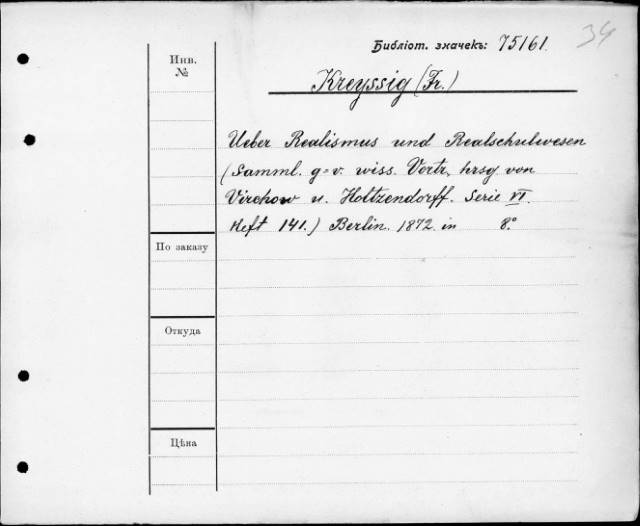 34
Библіот. значекъ: 75161.
Инв.
№
Kreyssig (Fr.)
Ueber Realismus und Realschulwesen
(Samml. g=v. wiss. Vortr. hrsg. von
Virchow u. Holtzendorff. Serie VI.
Heft 141.) Berlin. 1872. in 8°.
По заказу
Откуда
Цѣна